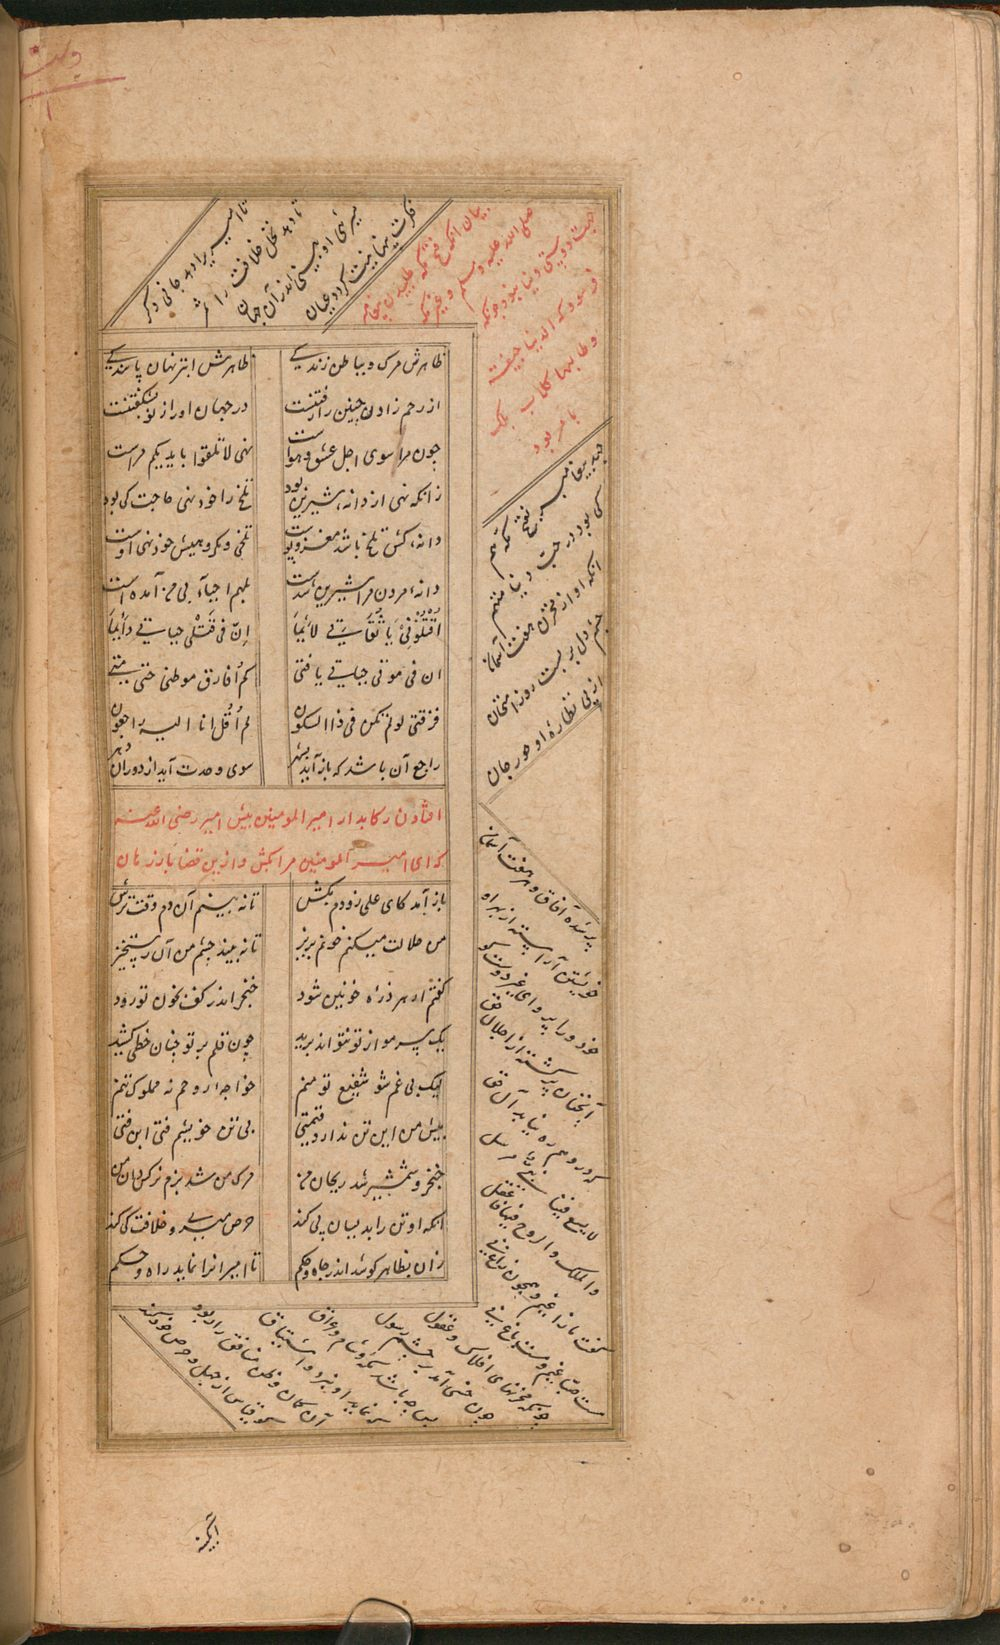 ظاهرش مرک و بباطن زندکی ظاهرش ابتر نهان پایندکی
از رحم زادن چنین را رفتنست در جهان او را ز نو بشکفتنست
چون مرا سوی اجل عشق و هواست نهی لا تلقوا بایدیکم مراست
زانکه نهی از دانه شیرین بود تلخ را خود نهی حاجت کی بود
دانه کش تلخ باشد مغز و پوست تلخی و مکروهیش خود نهی اوست
دانه مردن مرا شیرین شدست بل هم احیاء پی من آمدست
اقتلونی یا ثقاتی لائما ان فی قتلی حیاتی دائما
ان فی موتی حیاتی یا فتی کم افارق موطنی حتی متی
فرقتی لو لم تکن فی ذا السکون لم اقل انا الیه راجعون
راجع آن باشد که باز آید بشهر سوی وحدت آید از دوران دهر
افتادن رکابدار امیر المومنین پیش امیر رضی الله عنه
که ای امیر المومنین مرا بکش و ازین قضا باز رهان
باز آمد کای علی زودم بکش تا نه بینم آن دم و وقت ترش
من حلالت میکنم خونم بریز تا نه بیند چشم من آن رستخیز
کفتم ار هر ذره خونین شود خنجر اندر کف بخون تو رود
یک سر مو از تو نتواند برید چون قلم بر تو چنان خطی کشید
لیک بی غم شو شفیع تو منم خواجه روحم نه مملوک تنم
پیش من این تن ندارد قیمتی بی تن خویشم فتی ابن فتی
خنجر و شمشیر شد ریحان من مرک من شد بزم و نرکسدان من
انکه او تن را بدینسان پی کند حرص میری و خلافت کی کند
زان بظاهر کوشد اندر جاه و حکم تا امیرانرا نماید راه و حکم
تا امیری را دهد جانی دکر
تا دهد نخل خلافت را ثمر
میرئی او بینی اندر آن جهان
فکرت پنهانیت کردد عیان
بیان انکه فتح مکه طلبیدن پیغامبر
صلی الله علیه وسلم و غیر مکه
جهت دوستی دنیا نبود چونکه
فرموده که الدنیا جیفه
و طالبها کلاب بلک
بامر بود
جهد پیغامبر بفتح مکه هم
کی بود در حب دنیا متهم
انکه او از مخزن هفت آسمان
چشم و دل بر بست روز امتحان
از پی نظاره او حور و جان
پر شده آفاق هر هفت آسمان
خویشتن آراسته از بهر او
خود ورا پروای غیر دوست کو
آنچنان پر کشته از اجلال حق
که درو هم ره نیابد آل حق
لا یسع فینا نبی مرسل
والملک والروح ایضا فاعقلوا
کفت ما زاغیم همچون زاغ نی
مست صباغیم مست باغ نی
چونکه مخزنهای افلاک و عقول
چون خسی آمد بر چشم رسول
پس چه باشد مکه و شام و عراق
که نماید او نبرد و اشتیاق
آن کمان و ظن منافق را بود
کو قیاس از جهل و حرص خود کند
آبگینه